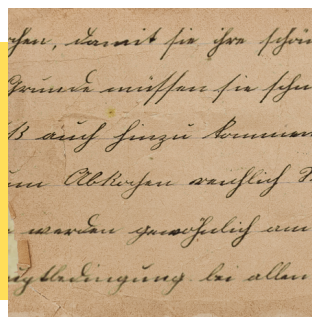 chen, damit sie ihre schön
Grunde müssen sie schn
ß auch hinzu kommen
um Abkochen reichlich
werden gewöhnlich am
uptbedingung bei allen